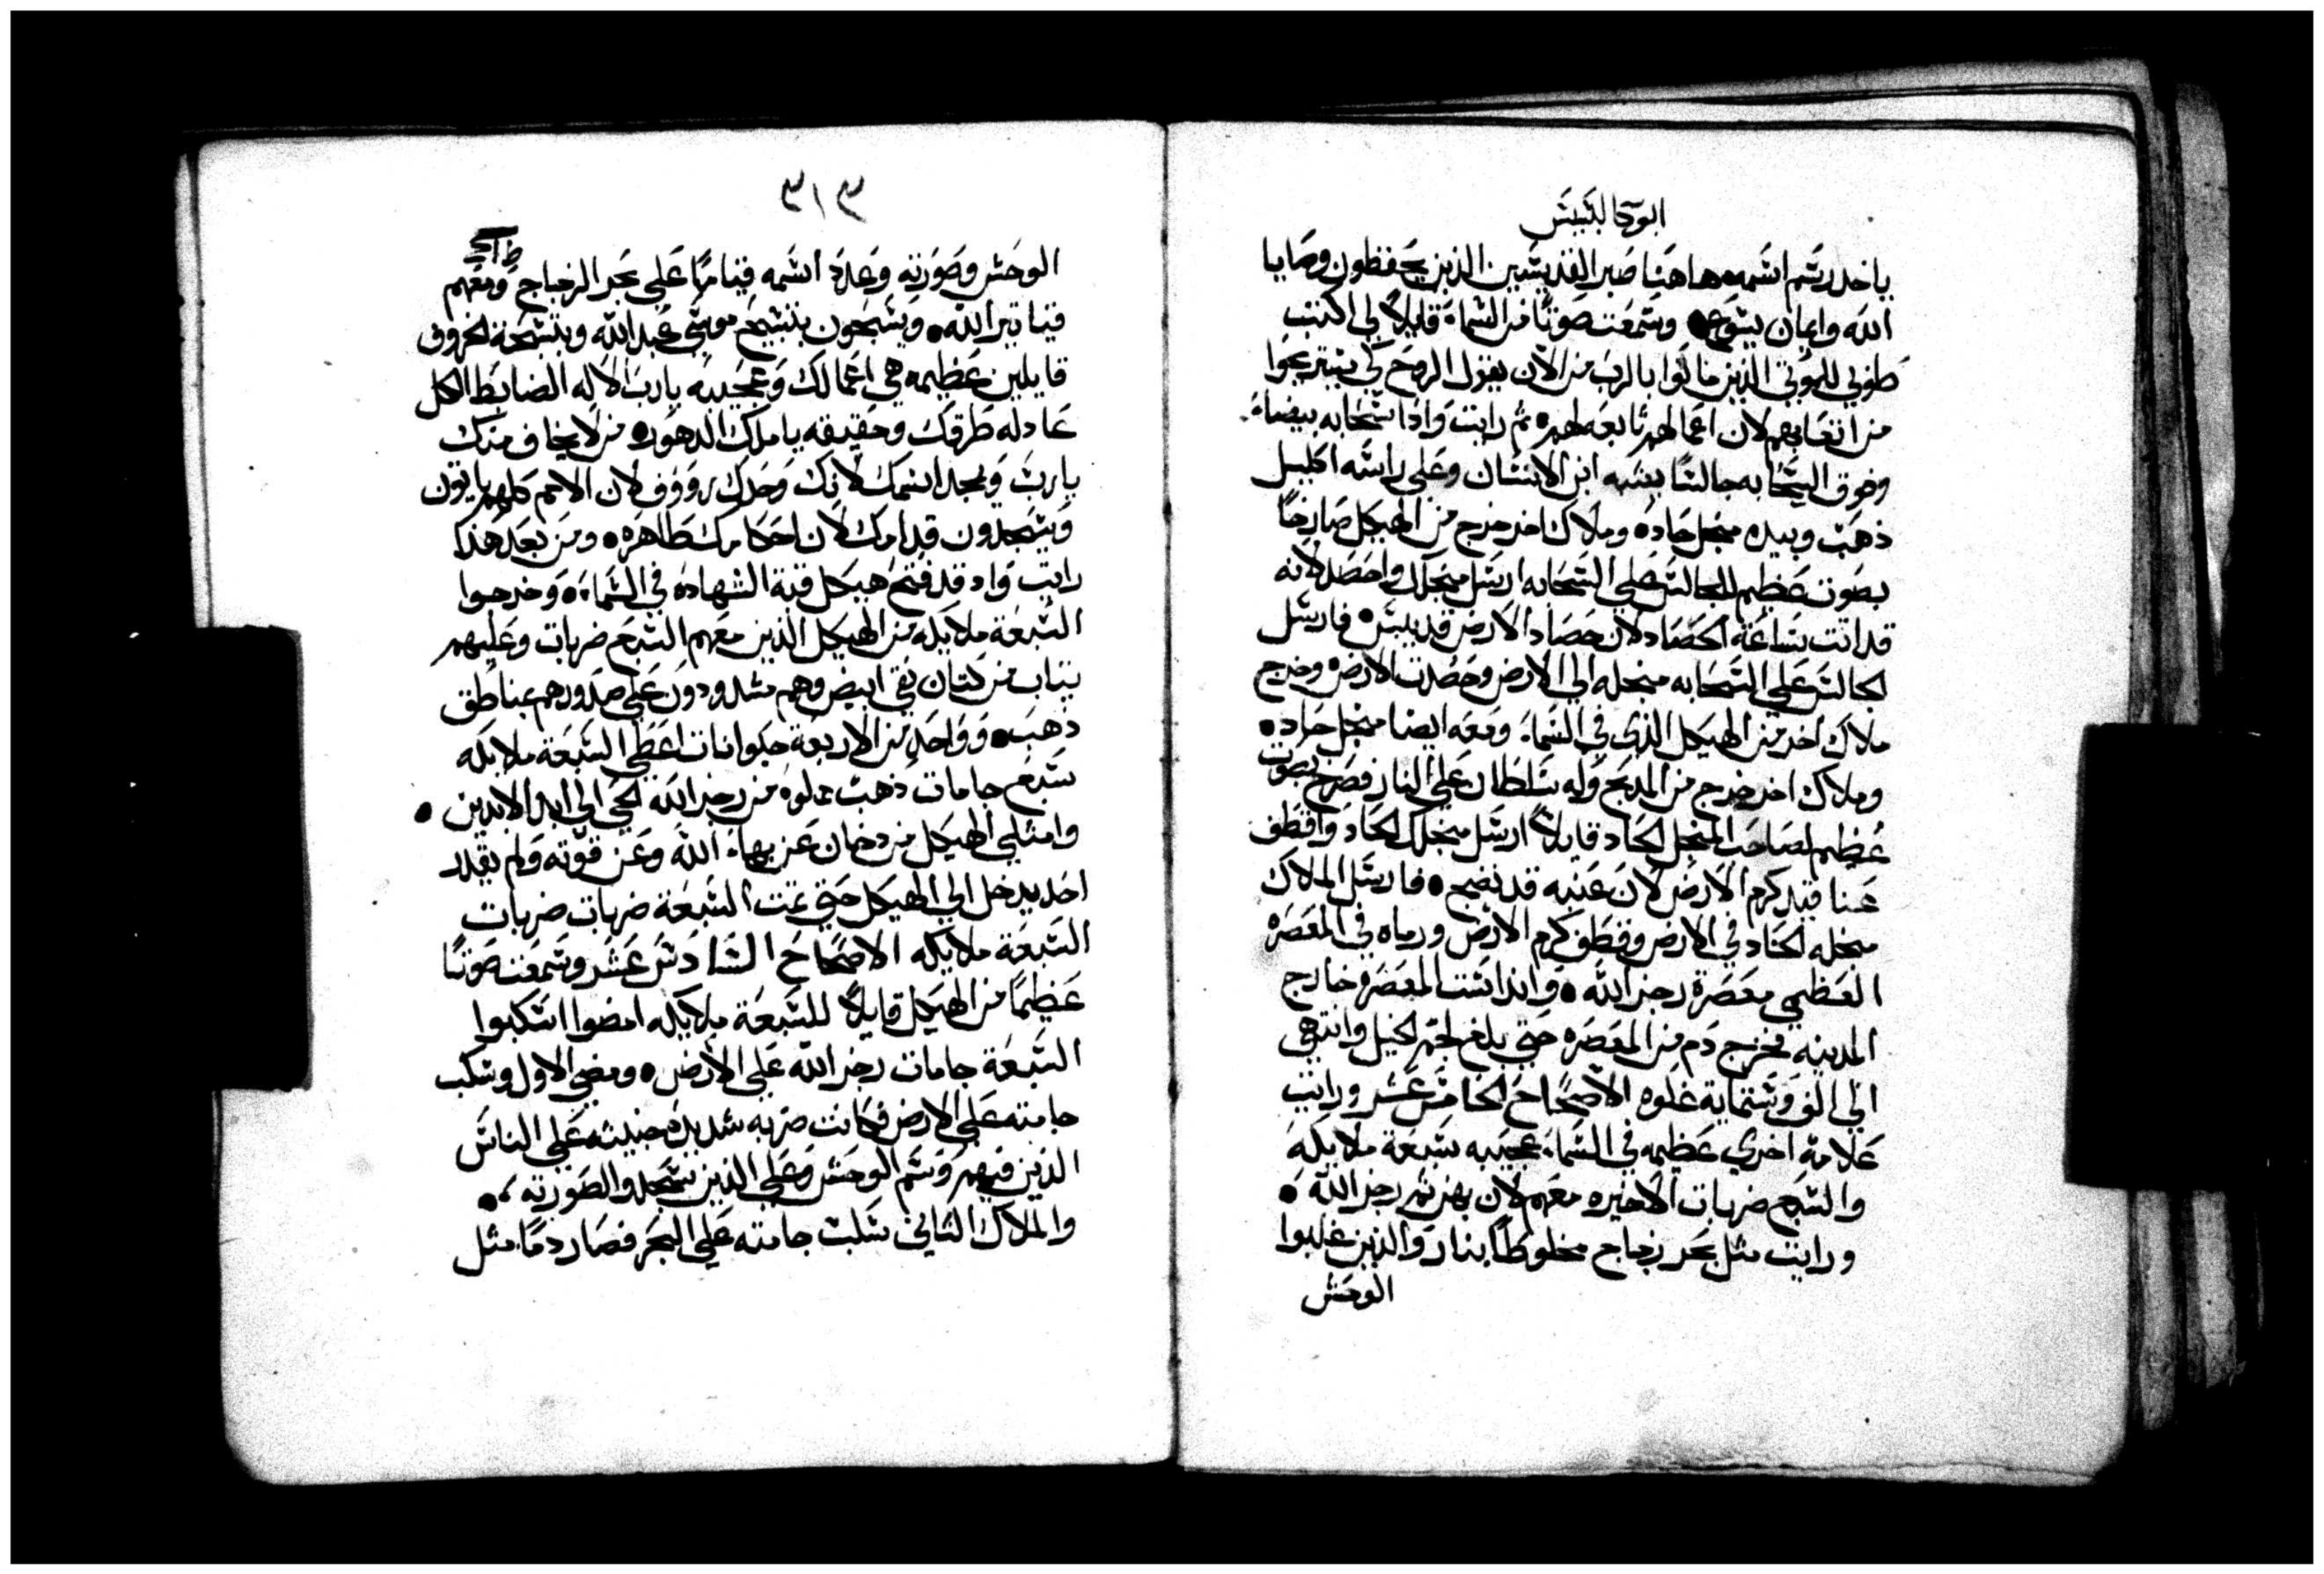 ابوكالبسيس
ياخد رسم اسمه هاهنا صبر القديسين الذين يحفظون وصايا
الله وايمان يسوع وسمعت صوتًا من السماء قايلاً لي اكتب
طوبي للموتي الذين ماتوا بالرب من الآن يقول الروح لكي يستريحوا
من اتعابهم لان اعمالهم تابعه لهم ثم رايت واذا سحابه بيضاء
وفوق السحابه جالسًا يشبه ابن الانسان وعلي راسه اكليل
ذهب وبيده منجل حاده وملاك اخر خرج من الهيكل صارخًا
بصوت عظيم للجالس علي السحابه ارسل منجلك واحصد لانه
قد اتت ساعة الحصاد لان حصاد الارض قد يبس فارسل
الجالس علي السحابه منجله الي الارض وحصدت الارض وخرج
ملاك اخر من الهيكل الذي في السماء ومعه ايضا منجل حاد
وملاك اخر خرج من المدبح وله سلطان علي النار فصرخ بصوت
عظيم لصاحب المنجل الحاد قايلاً ارسل منجلك الحاد واقطف
عناقيد كرم الارض لان عنبه قد نضج فارسل الملاك
منجله الحاد في الارض وقطف كرم الارض ورماه في المعصره
العظمي معصرة رجز الله وانداست المعصره خارج
المدينه فخرج دم من المعصره حتي بلغ لجم الخيل وانتهي
الي الف وستماية غلوه الاصحاح الخامس عشر ورايت
علامة اخري عظيمه في السماء عجيبه سبعة ملايكه
والسبع ضربات الاخيره معهم لان بهن تم رجز الله
ورايت مثل بحر زجاج مخلوطًا بنار والذين غلبوا
الوحش
٣١٣
الوحش وصورته وعدد اسمه قيامًا علي بحر الزجاج ومعهم
قياتير الله ويسبحون بتسبيح موسي عبد الله وبتسبحة الخروف
قايلين عظيمه هي اعمالك وعجيبه يارب الاله الضابط الكل
عادله طرقك وحقيقه ياملك الدهور من لا يخاف منك
يارب ويمجد اسمك لانك وحدك رووف لان الامم كلهم ياتون
ويسجدون قدامك لان احكامك طاهره ومن بعد هذا
رايت واد قد فتح هيكل قبة الشهاده في السماء وخرجوا
السبعة ملايكه من الهيكل الذين معهم السبع ضربات وعليهم
تياب من كتان نقي ابيض وهم مشدودون علي صدورهم بمناطق
ذهب وواحد من الاربعة حيوانات اعطي السبعة ملايكه
سبع جامات ذهب مملوه من رجز الله الحي الي ابد الابدين
وامتلي الهيكل من دخان عز بهاء الله وعن قوته ولم يقدر
احد يدخل الي الهيكل حتي تمت السبعة ضربات ضربات
السبعة ملايكه الاصحاح السادس عشر وسمعت صوتًا
عظيمًا من الهيكل قايلاً للسبعة ملايكه امضوا اسكبوا
السبعة جامات رجز الله علي الارض ومضي الاول وسكب
جامته علي الارض فكانت ضربه شديده خبيثه علي الناس
الذين فيهم وسم الوحش وعلي الذين سجدوا لصورته
والملاك الثاني سكب جامته علي البحر فصار دمًا مثل